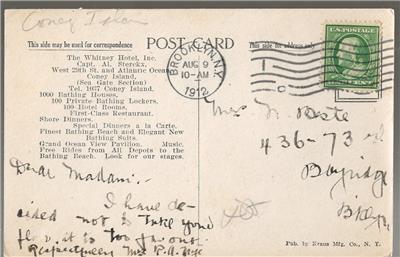 Coney Island
This side may be used for correspondence
POST CARD
This side for address only
The Whitney Hotel, Inc.
Capt. Al. Sterckx,
West 29th St. and Atlantic Ocean
Coney Island,
(Sea Gate Section)
Tel. 1637 Coney Island.
1000 Bathing Houses,
100 Private Bathing Lockers.
100 Hotel Rooms.
First-Class Restaurant.
Shore Dinners.
Special Dinners a la Carte.
Finest Bathing Beach and Elegant New
Bathing Suits.
Grand Ocean View Pavilion. Music.
Free Rides from All Depots to the
Bathing Beach. Look for our stages.
BROOKLYN, N.Y.
AUG 9
10-AM
1912
Mrs
436-73rd
Bayridge
Bklyn
Dear Madam:-
I have de-
cided not to take your
flat it is too far out.
Respectfully Mrs
Pub. by Kraus Mfg. Co., N. Y.